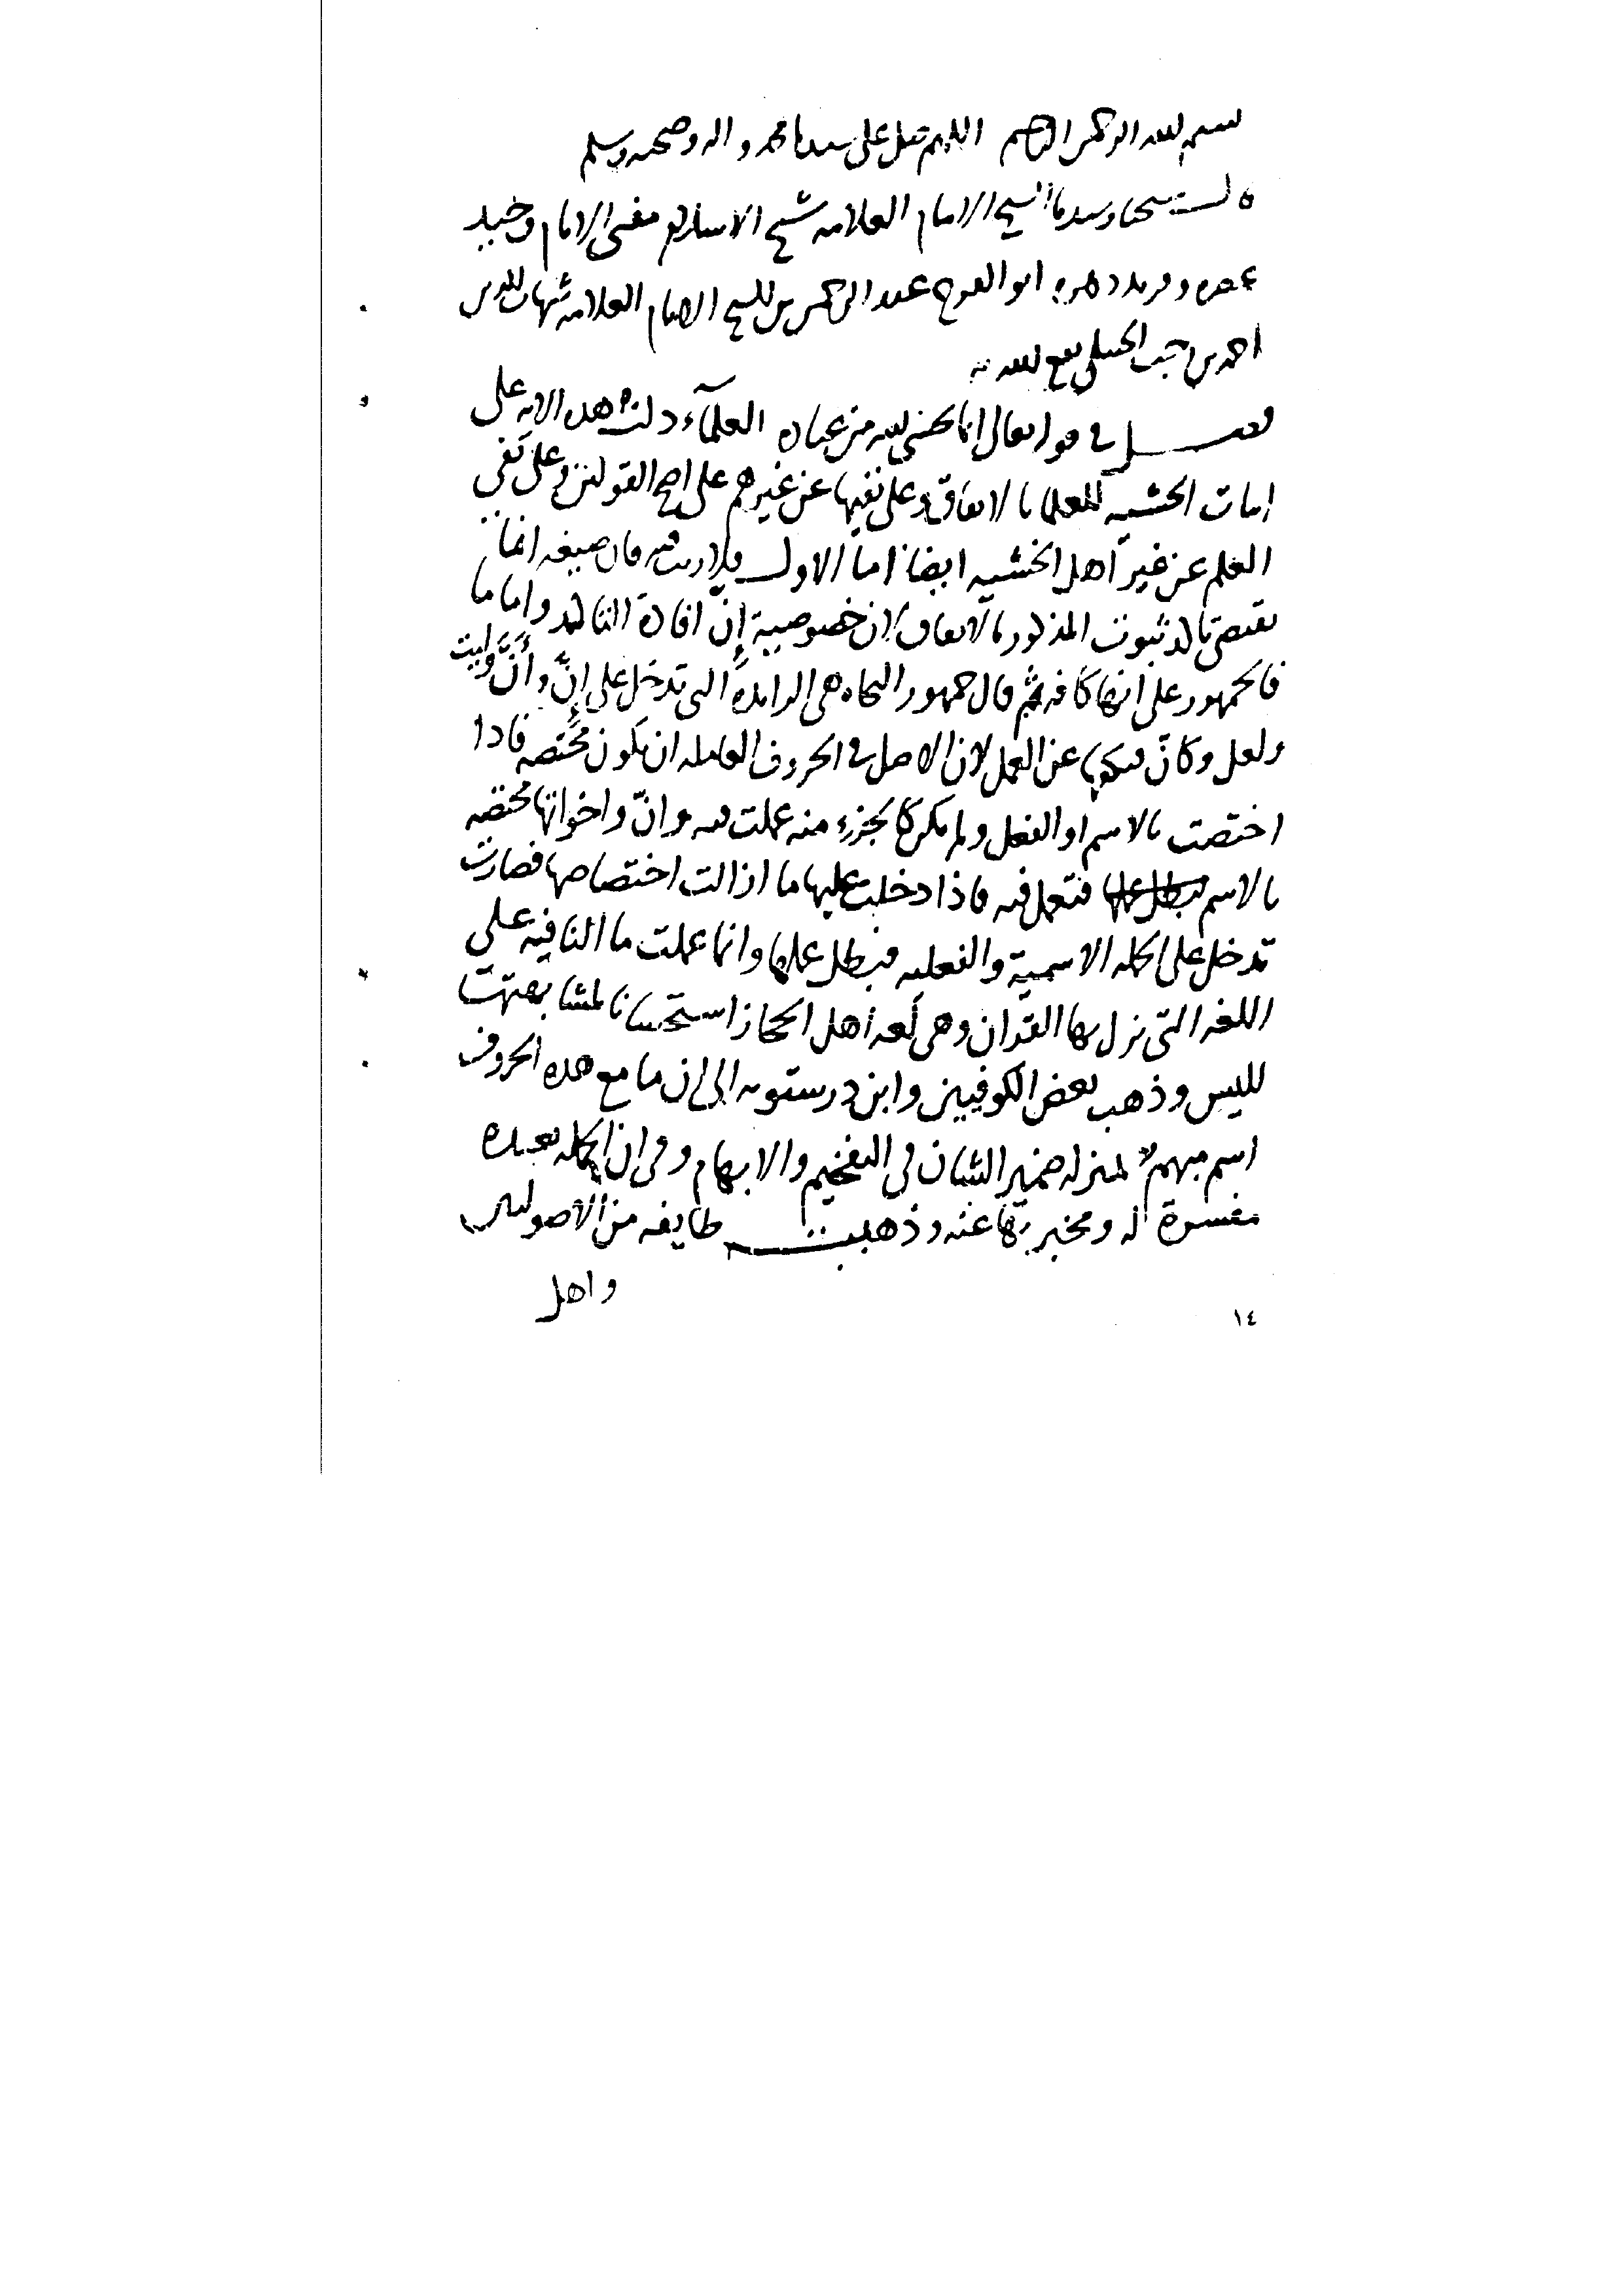 بسم الله الرحمن الرحيم اللهم صل على سيدنا محمد واله وصحبه وسلم
قال شيخنا وسيدنا الشيخ الامام العلامه شيخ الاسلام مفتي الانام وحيد
عصره وفريد دهره ابو الفرج عبد الرحمن بن الشيخ الامام العلامه شهاب الدين
احمد بن رجب الحنبلي
فصل في قوله تعالى انما يخشى الله من عباده العلمآء دلت هده الايه على
اثبات الخشيه للعلما بالاتفاق وعلى نفيها عن غيرهم على اصح القولين وعلى نفي
العلم عن غير اهل الخشيه ايضا اما الاول فلا ريب فيه فان صيغه انما
تقتضي تاكيد ثبوت المذكور بالاتفاق لان خصوصية إن افادة التاكيد واما ما
فالجمهور على انها كافه ثم قال جمهور النحاه هي الزايدة التي تدخل على إنَّ وأنَّ وليت
ولعل وكأنّ فتكفها عن العمل لان الاصل في الحروف العامله ان تكون مختصه فاذا
اختصت بالاسم او الفعل ولم تكن كالجزء منه عملت فيه وانّ واخواتها مختصه
بالاسم فتعمل فيه فاذا دخلت عليها ما ازالت اختصاصها فصارت
تدخل على الجمله الاسمية والفعليه فبطل عملها وانما عملت ما النافيه على
اللغه التي نزل بها القران وهي لغه اهل الحجاز استحسانا لمشابهتها
لليس وذهب بعض الكوفيين وابن درستويه الى ان ما مع هده الحروف
اسم مبهم بمنزله ضمير الشان في التفخيم والابهام وفي ان الجمله بعده
مفسرة له ومخبر بها عنه وذهبت طايفه من الاصوليين
واهل
١٤